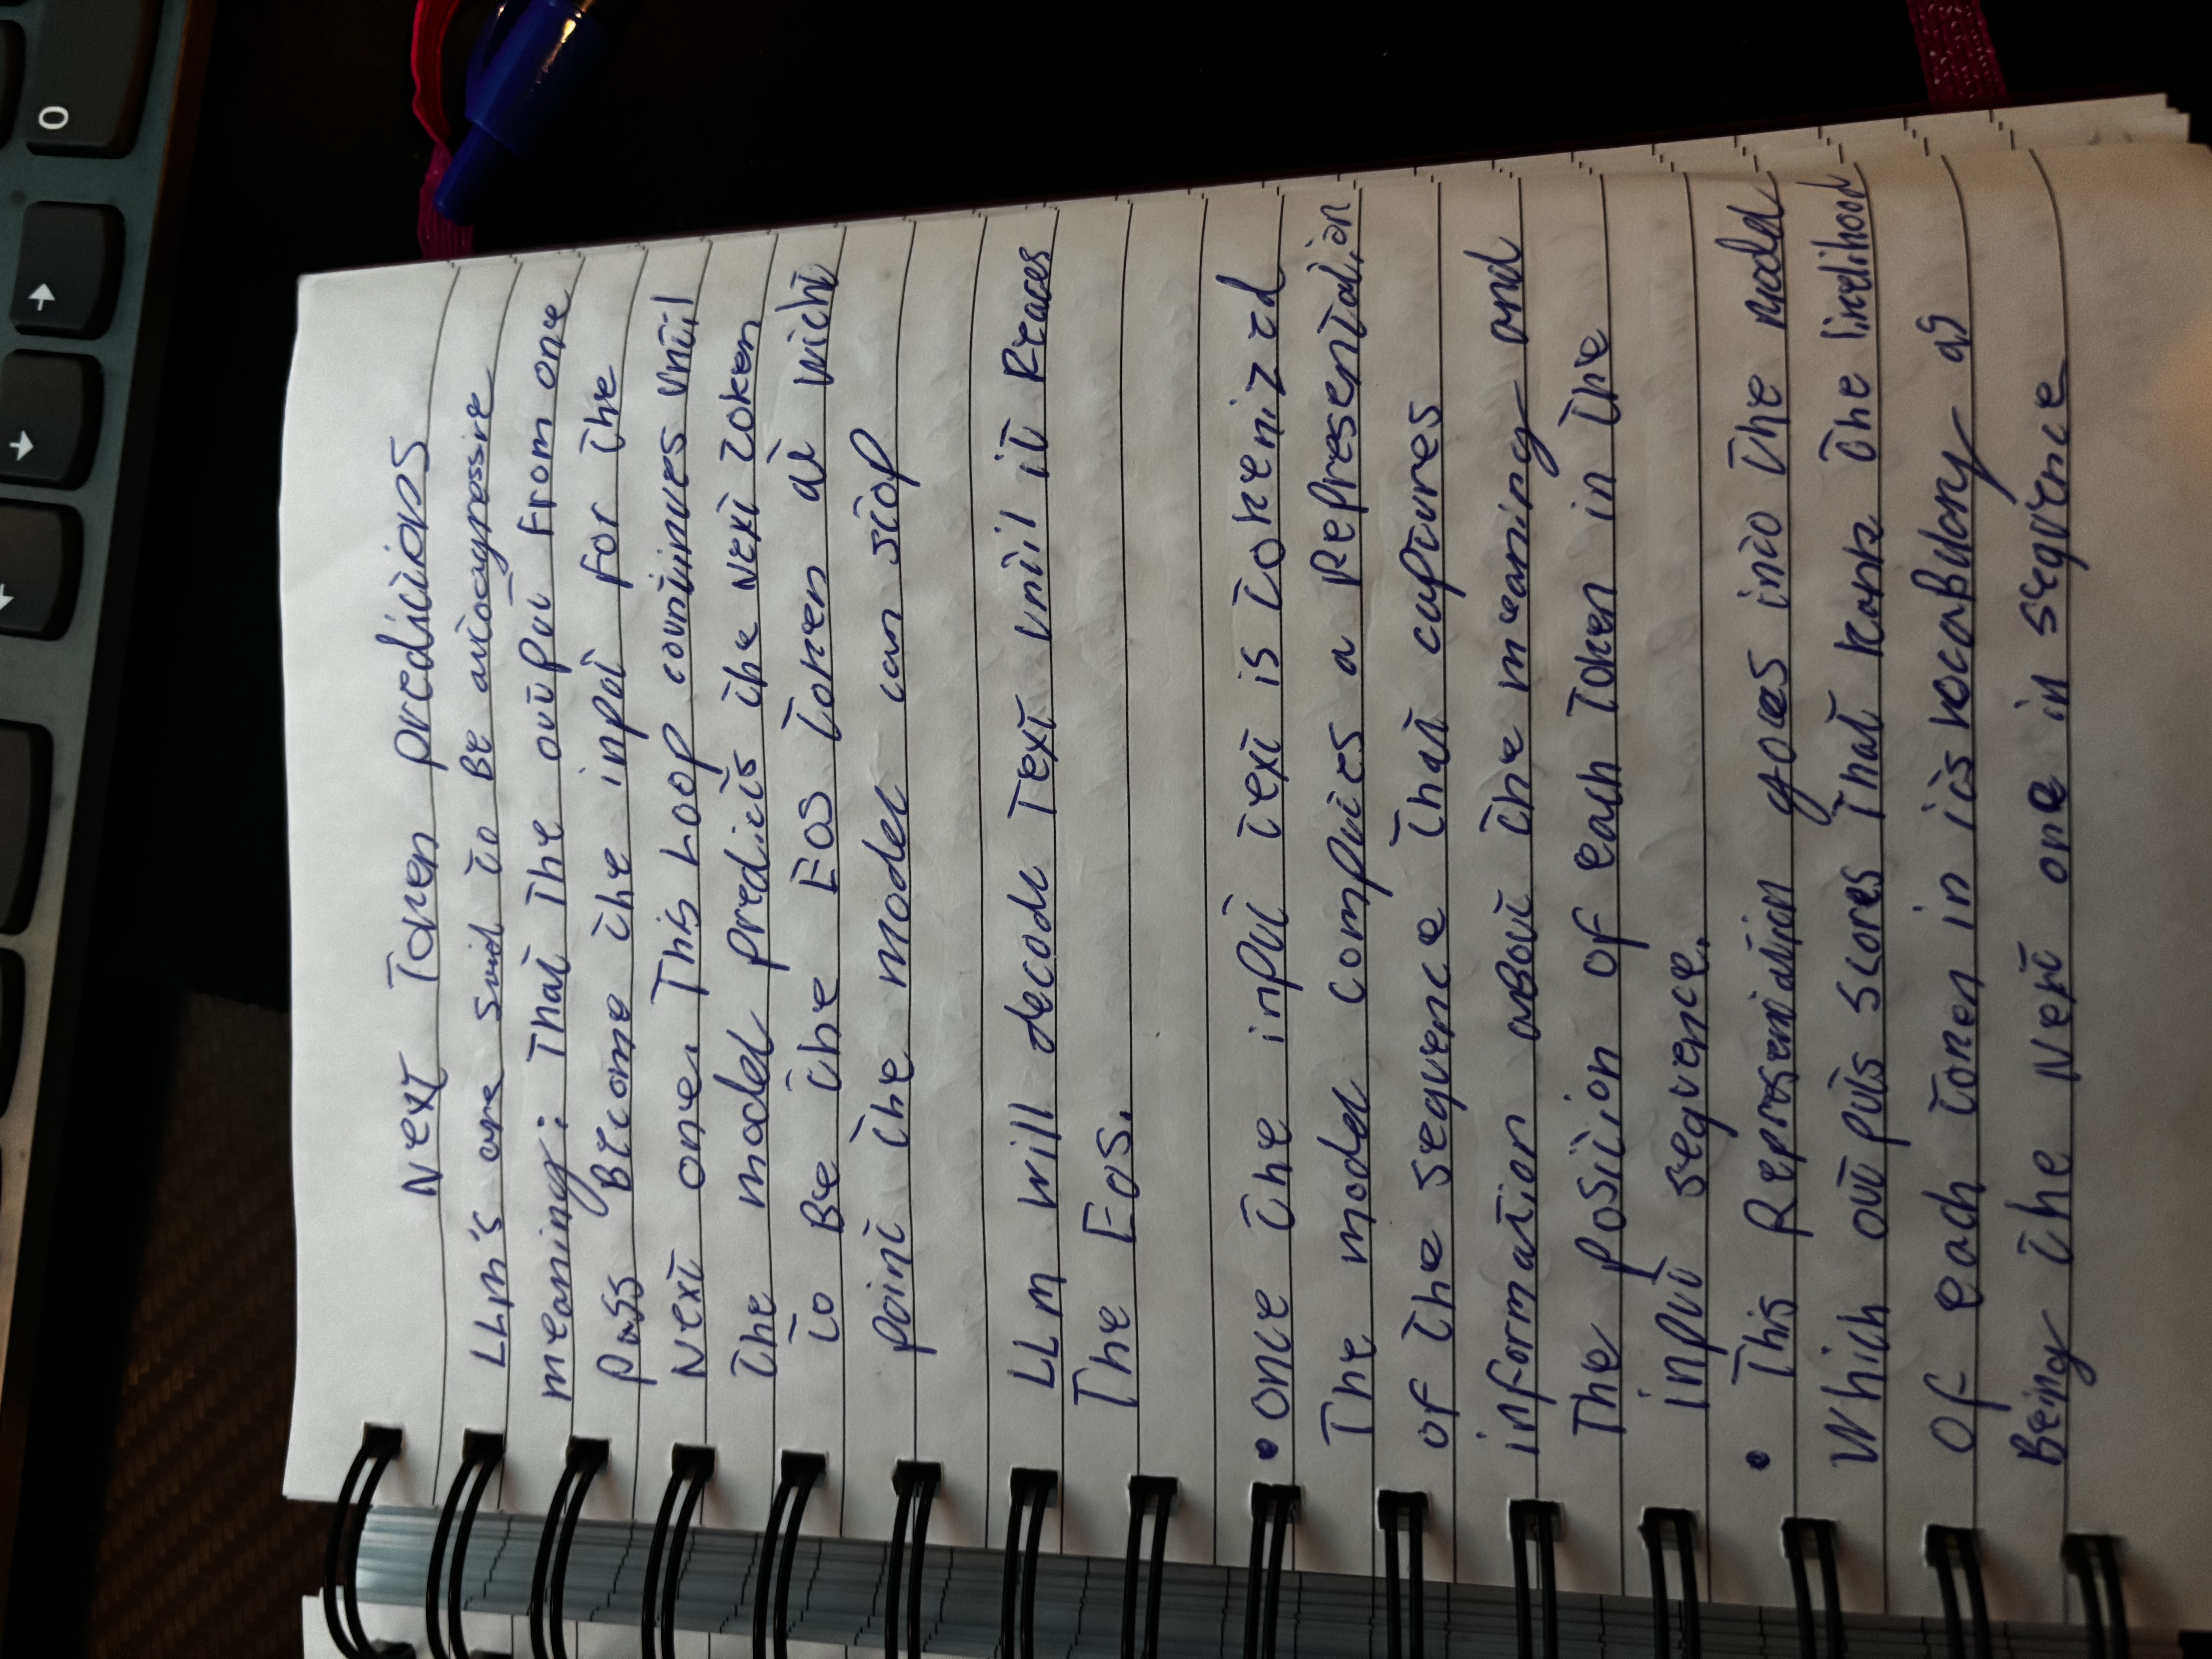 0
Next Token predictions
LLm's are said to Be autoagressive
meaning: That The output From one
pass Become the input for the
Next one. This Loop countinues until
the model predicts the Next Token
to Be the EOS Token at wicht
point the model can stop
LLm will decode Text until it Reaces
The Eos.
• once the input text is tokenized
The model computes a Representation
of the sequence that captures
information about the meaning and
The position of each Token in the
input sequence.
• This Representation goes into the model
Which outputs scores That Rank the likelihood
Of each token in its vocabulary as
Being the Next one in sequence